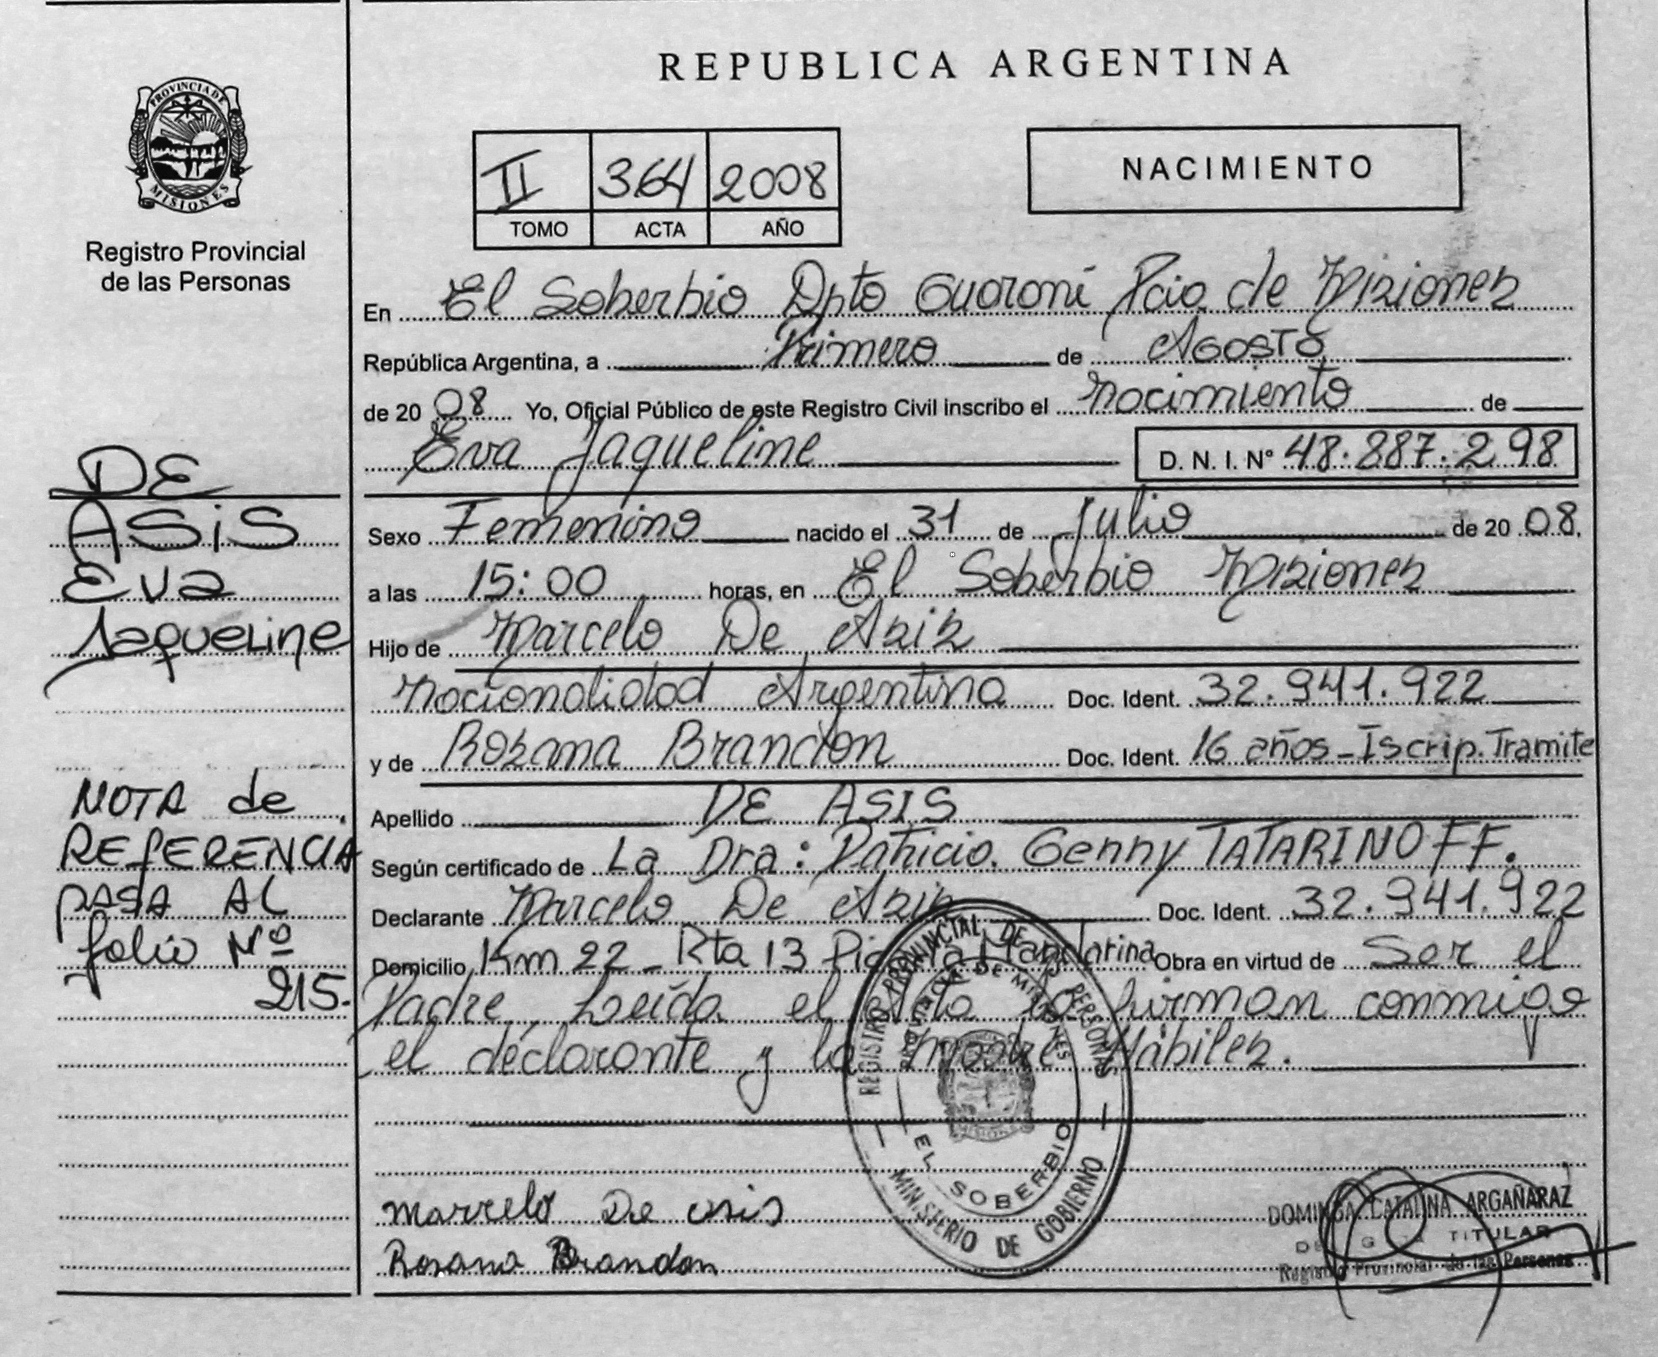 REPUBLICA ARGENTINA
PROVINCIA DE
MISIONES
Registro Provincial
de las Personas
II 364 2008
TOMO ACTA AÑO
NACIMIENTO
En El Soberbio Dpto Guaraní Pcia de Misiones
República Argentina, a Primero de Agosto
de 20 08 Yo, Oficial Público de este Registro Civil inscribo el nacimiento de
Eva Jaqueline D. N. I. Nº 48.887.298
DE
ASiS
Eva
Jaqueline
Sexo Femenino nacido el 31 de Julio de 20 08.
a las 15:00 horas, en El Soberbio Misiones
Hijo de Marcelo De Asis
nacionalidad Argentina Doc. Ident. 32.941.922
y de Rosana Brandon Doc. Ident. 16 años - Iscrip. Tramite
Apellido DE ASIS
Según certificado de La Dra: Patricia Genny TATARINOFF.
Declarante Marcelo De Asis Doc. Ident. 32.941.922
Domicilio Km 22 - Rta 13 Mandarina Obra en virtud de Ser el
Padre Leída el Acta la firman conmigo
el declarante y la madre Hábiles.
NOTA de
REFERENCIA
PASA AL
folio Nº
215.
REGISTRO PROVINCIAL DE LAS PERSONAS
PROVINCIA DE MISIONES
EL SOBERBIO
MINISTERIO DE GOBIERNO
Marcelo De asis
Rosana Brandon
DOMINGA CATALINA ARGAÑARAZ
TITULAR
Registro Provincial de las Personas